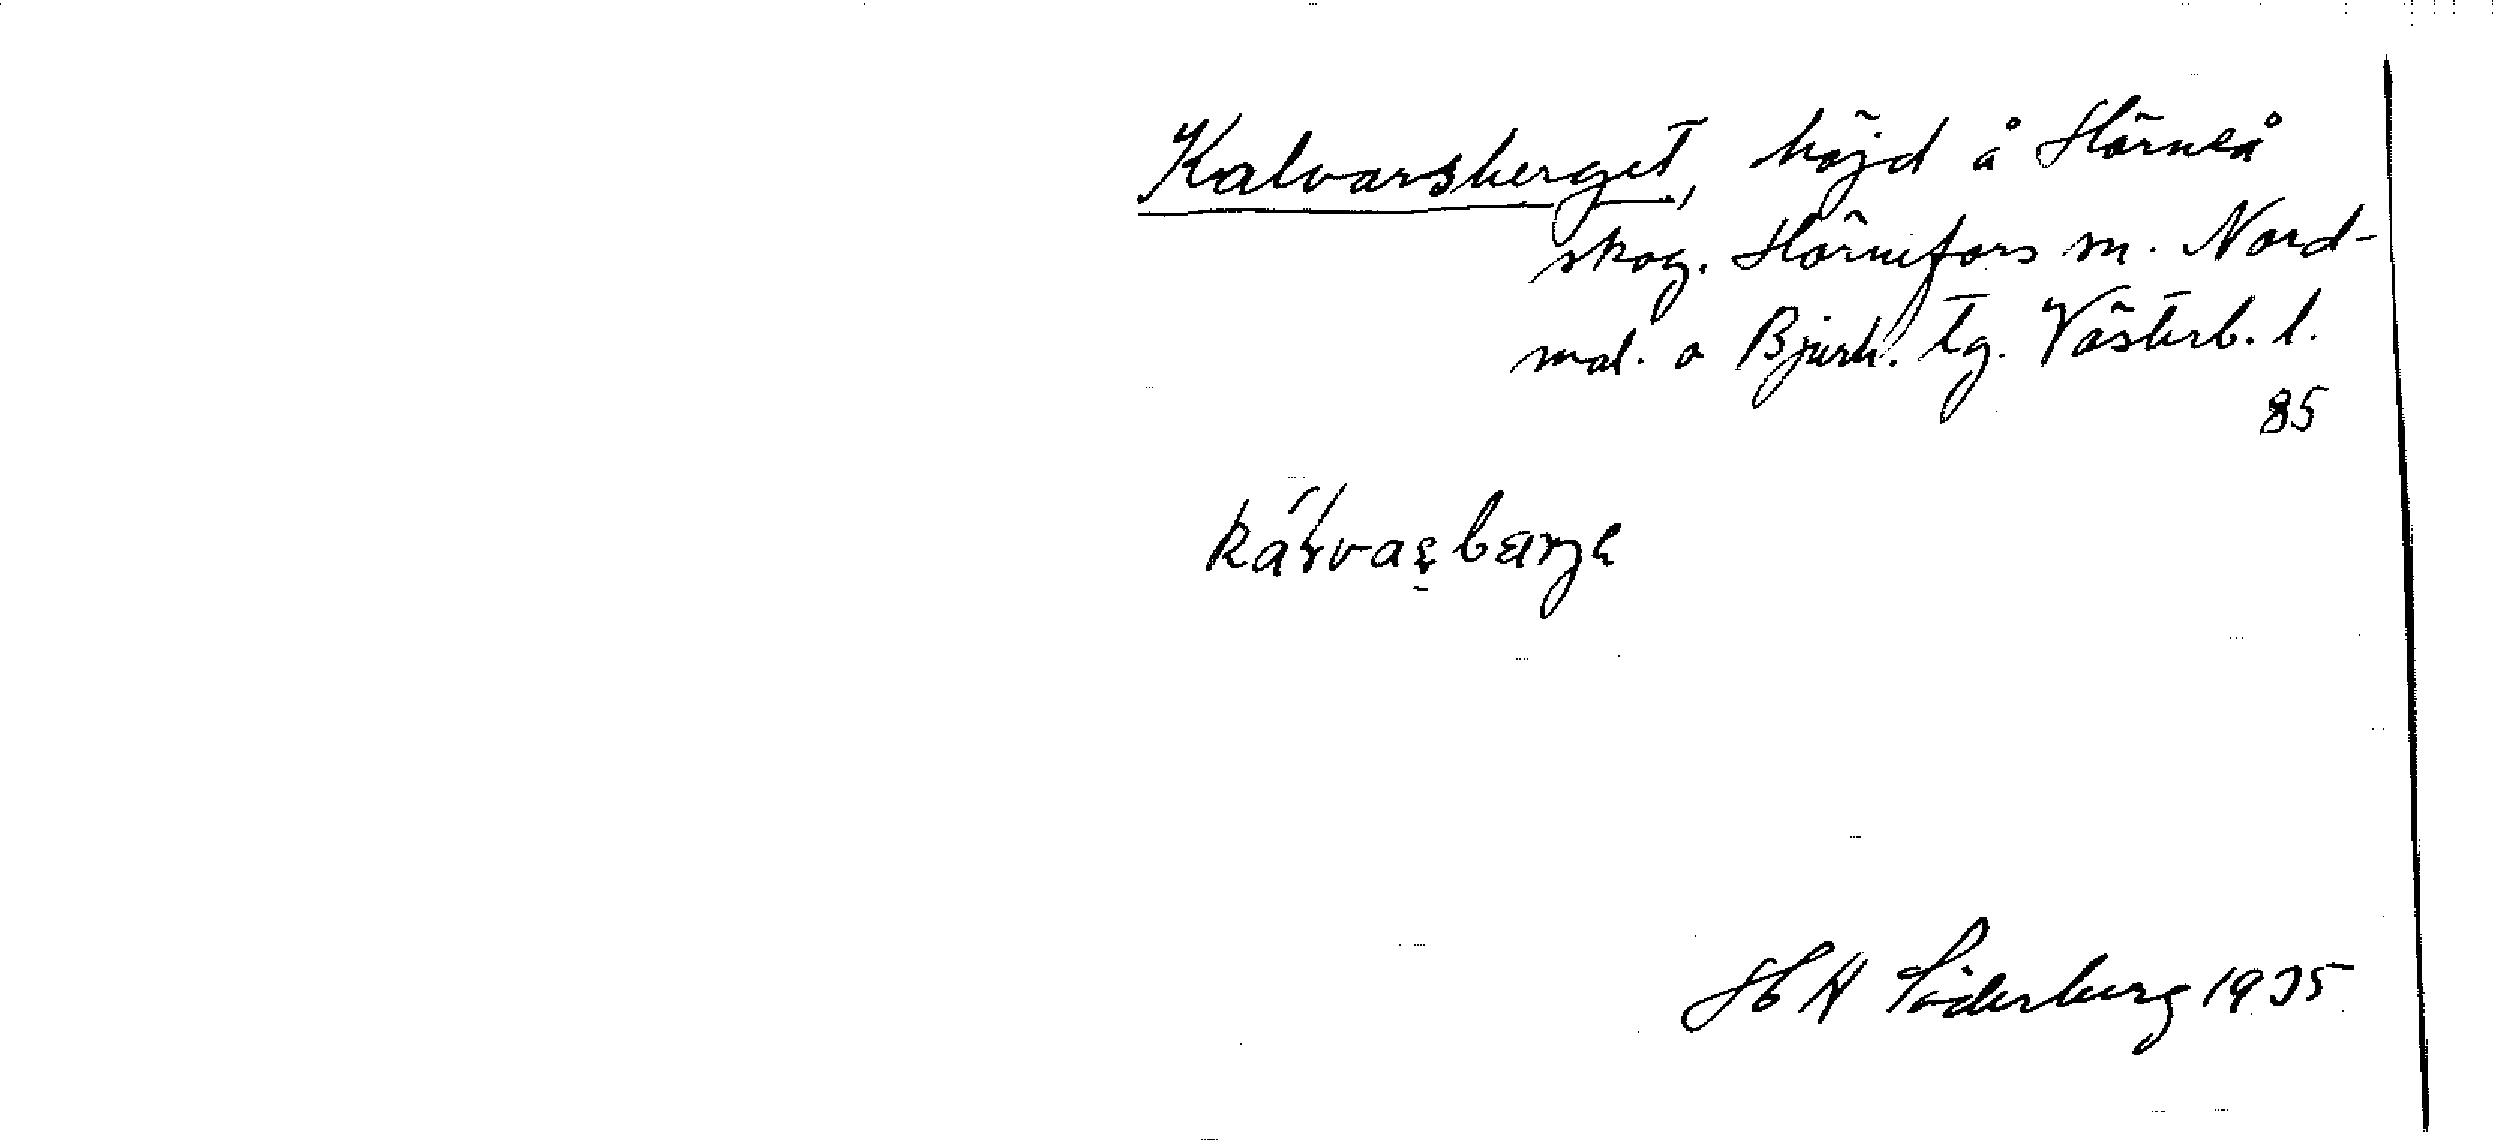 Kalvarsberget, höjd å Hörneå
skog. Hörnefors m. Nord-
mal. o Bjurh. tg. Västerb. l.
85
H Söderberg 1935